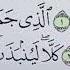 ۝١ ٱلَّذِي جَمَ
كَلَّا لَيُنۢبَذَ